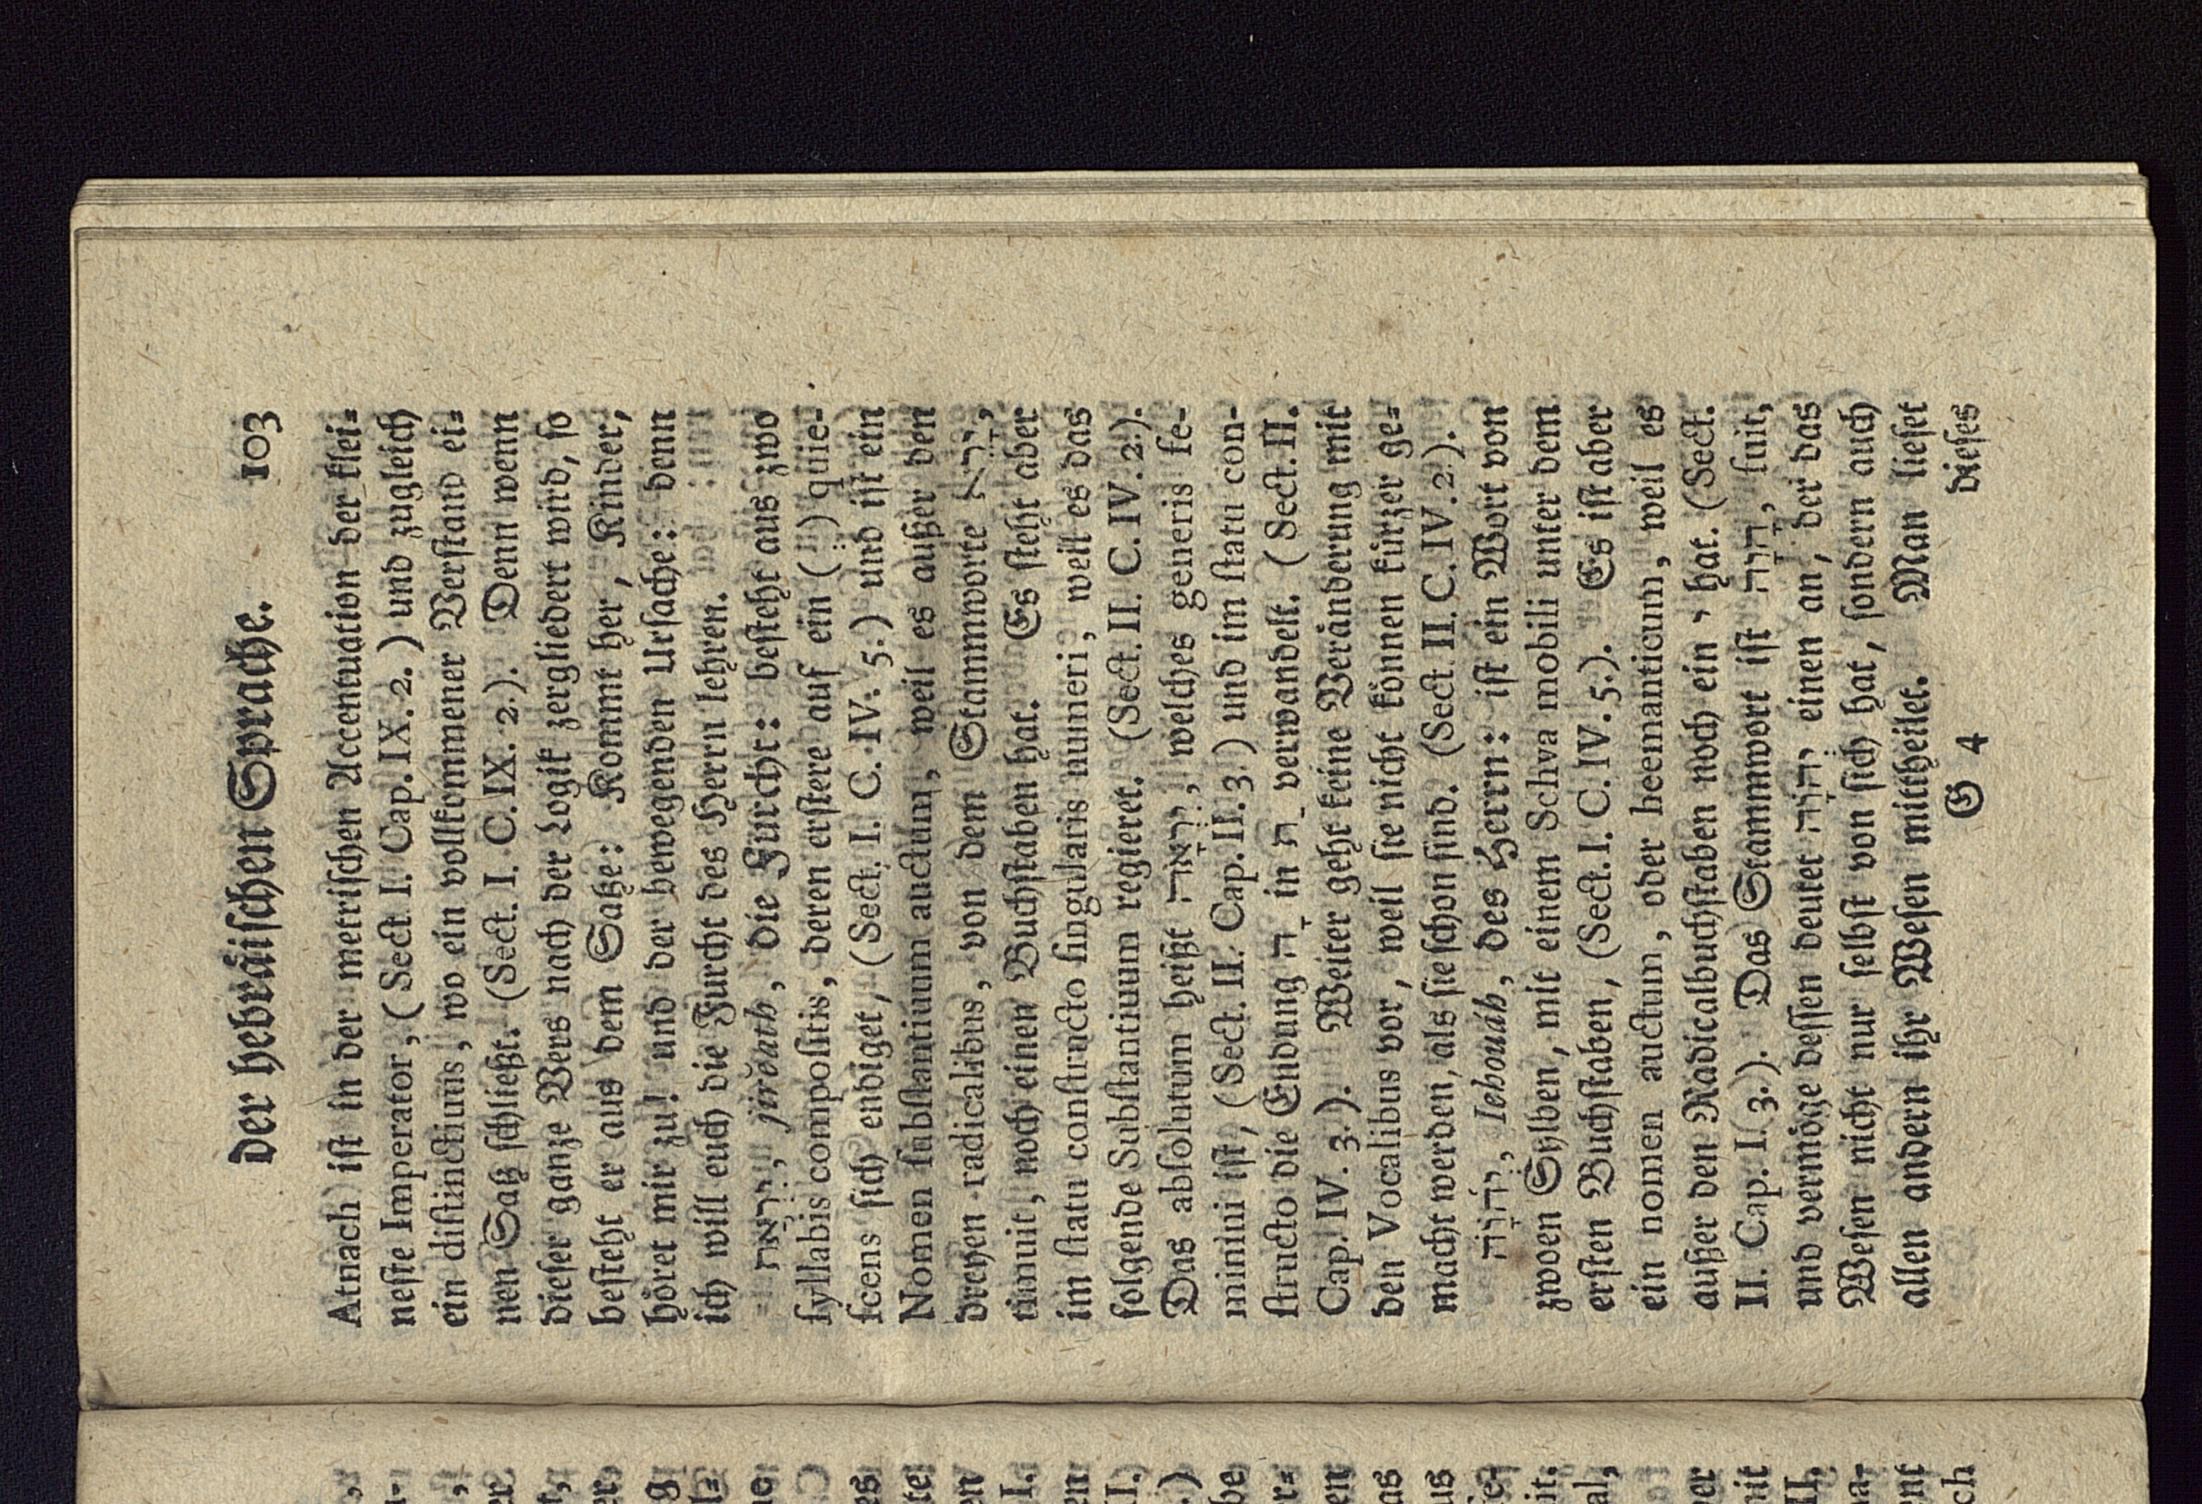 der hebräischen Sprache. 103
Atnach ist in der metrischen Accentuation der klei-
neste Imperator, (Sect. I. Cap. IX. 2.) und zugleich
ein distinctiuus, wo ein vollkommener Verstand ei-
nen Satz schließt. (Sect. I. C. IX. 2.). Denn wenn
dieser ganze Vers nach der Logik zergliedert wird, so
besteht er aus dem Satze: Kommt her, Kinder,
höret mir zu! und der bewegenden Ursache: denn
ich will euch die Furcht des Herrn lehren.
יִרְאַת, jireath, die Furcht: besteht aus zwo
syllabis compositis, deren erstere auf ein (ְ) quie-
scens sich endiget, (Sect. I. C. IV. 5.) und ist ein
Nomen substantiuum auctum, weil es außer den
dreyen radicalibus, von dem Stammworte יָרֵא,
timuit, noch einen Buchstaben hat. Es steht aber
im statu constructo singularis numeri, weil es das
folgende Substantiuum regieret. (Sect. II. C. IV. 2.).
Das absolutum heißt יִרְאָה, welches generis fe-
minini ist, (Sect. II. Cap. II. 3.) und im statu con-
structo die Endung הָ in תַ verwandelt. (Sect. II.
Cap. IV. 3.). Weiter geht keine Veränderung mit
den Vocalibus vor, weil sie nicht können kürzer ge-
macht werden, als sie schon sind. (Sect. II. C. IV. 2.).
יְהֹוָה, Iehouáh, des Herrn: ist ein Wort von
zwoen Sylben, mit einem Schva mobili unter dem
ersten Buchstaben, (Sect. I. C. IV. 5.). Es ist aber
ein nomen auctum, oder heemanticum, weil es
außer den Radicalbuchstaben noch ein י hat. (Sect.
II. Cap. I. 3.). Das Stammwort ist הָוָה, fuit,
und vermöge dessen deutet יְהֹוָה einen an, der das
Wesen nicht nur selbst von sich hat, sondern auch
allen andern ihr Wesen mittheilet. Man lieset
G 4 dieses